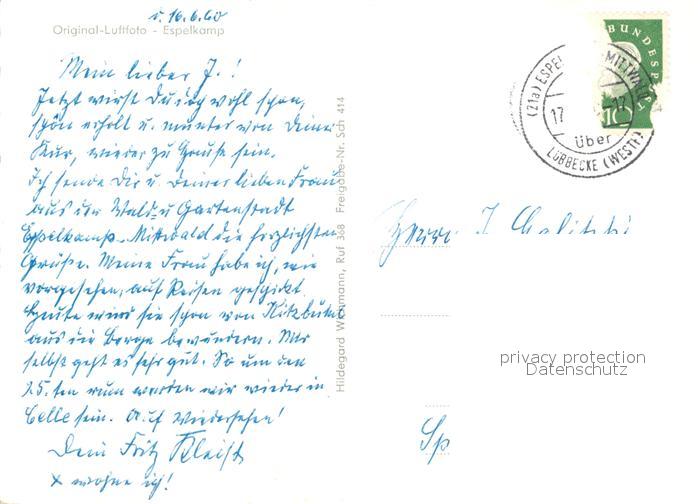 d. 16.6.60
Original-Luftfoto - Espelkamp
Mein lieber J.!
Jetzt wirst Du doch wohl schon,
schön erholt u. munter von Deiner
Kur, wieder zu Hause sein.
Ich sende Dir u. Deiner lieben Frau
aus der Wald- u Gartenstadt
Espelkamp-Mittwald die herzlichsten
Grüße. Meine Frau habe ich, wie
vorgesehen, auf Reisen geschickt.
Heute wird sie schon von Kitzbühel
aus die Berge bewundern. Mir
selbst geht es sehr gut. So um den
25.ten rum werden wir wieder in
Celle sein. Auf Wiedersehen!
Dein Fritz Kleist
x wohne ich!
Hildegard Wickmann, Ruf 368 Freigabe-Nr. Sch 414
BUNDESPOST
10
(21a) ESPEL MITTWALD
17
über
LÜBBECKE (WESTF)
Herrn J
Sp
privacy protection
Datenschutz